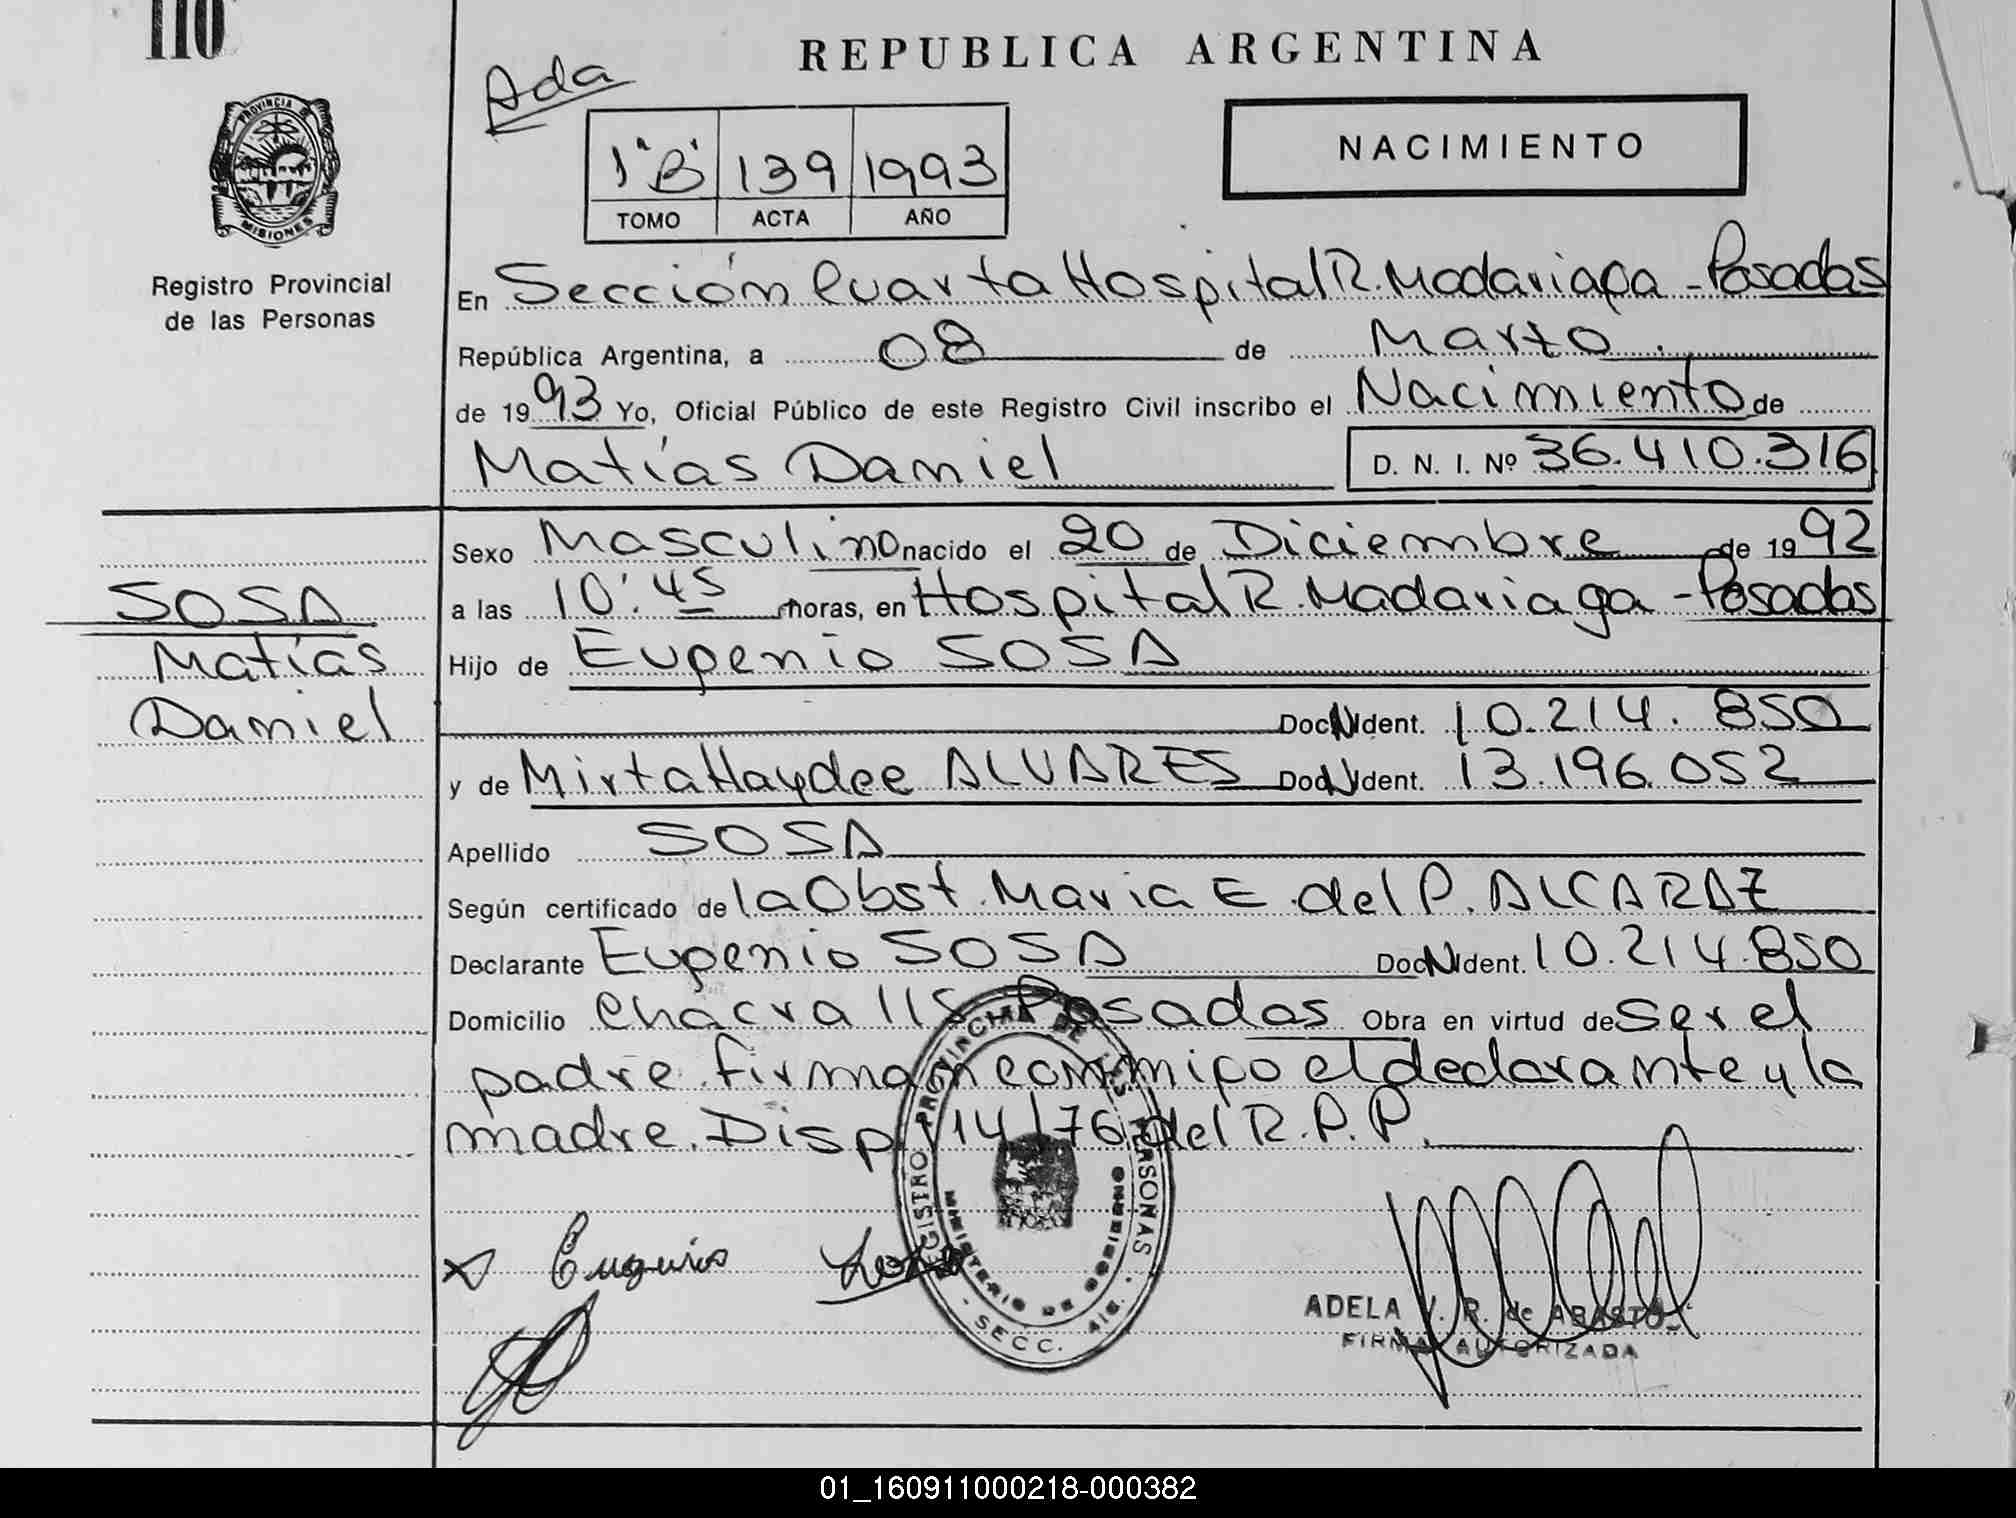 110
REPUBLICA ARGENTINA
Ada
1º "B" 139 1993
TOMO ACTA AÑO
NACIMIENTO
PROVINCIA DE
MISIONES
Registro Provincial
de las Personas
En Sección Cuarta Hospital R. Madariaga - Posadas
República Argentina, a 08 de Marzo
de 1993 Yo, Oficial Público de este Registro Civil inscribo el Nacimiento de
Matías Daniel D. N. I. Nº 36.410.316
Sexo Masculino nacido el 20 de Diciembre de 1992
a las 10:45 horas, en Hospital R. Madariaga - Posadas
Hijo de Eugenio SOSA
Doc N Ident. 10.214.850
y de Mirta Haydee ALVARES Doc N Ident. 13.196.052
Apellido SOSA
Según certificado de la Obst. Maria E. del P. ALCARAZ
Declarante Eugenio SOSA Doc N Ident. 10.214.850
Domicilio Chacra 115 Posadas Obra en virtud de ser el
padre. firman conmigo el declarante y la
madre. Disp. 14/76 del R.P.P.
SOSA
Matías
Daniel
REGISTRO PROVINCIAL DE LAS PERSONAS
MINISTERIO DE GOBIERNO
- SECC. 4ta. -
Eugenio Sosa
ADELA V. R. de ABASTO
FIRMA AUTORIZADA
01_160911000218-000382